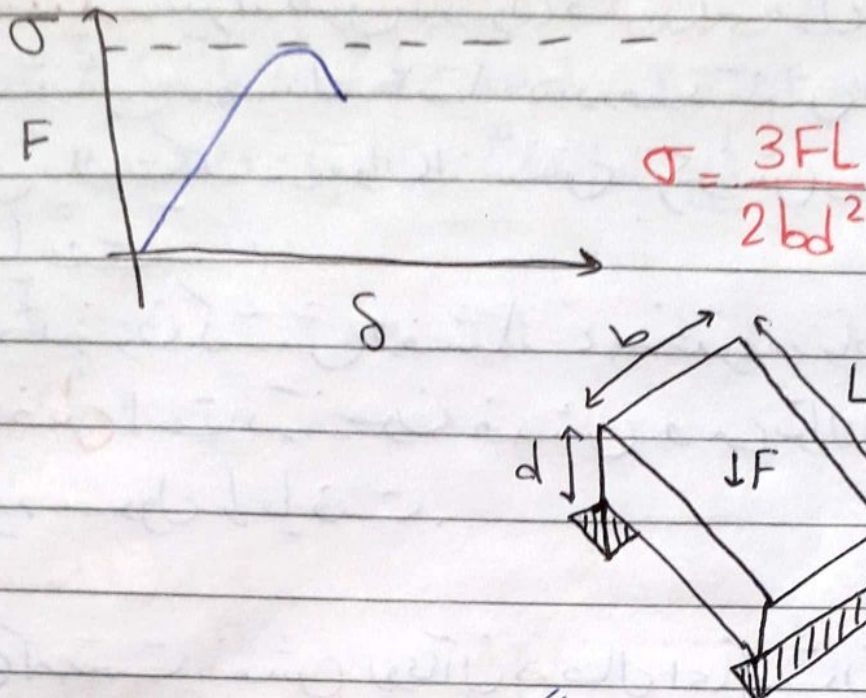 σ
F
δ
σ = 3FL
2bd²
b
L
d
↓F